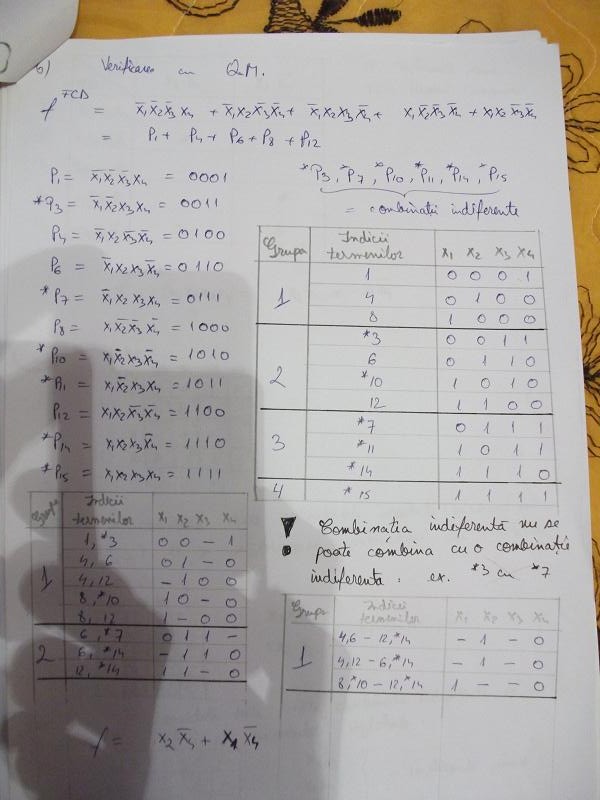 b) Verificarea cu QM.
f^FCD = x̄₁x̄₂x̄₃x₄ + x̄₁x₂x̄₃x̄₄ + x̄₁x₂x₃x̄₄ + x₁x̄₂x̄₃x̄₄ + x₁x₂x̄₃x̄₄
= P₁ + P₄ + P₆ + P₈ + P₁₂
P₁ = x̄₁x̄₂x̄₃x₄ = 0001
*P₃ = x̄₁x̄₂x₃x₄ = 0011
P₄ = x̄₁x₂x̄₃x̄₄ = 0100
P₆ = x̄₁x₂x₃x̄₄ = 0110
*P₇ = x̄₁x₂x₃x₄ = 0111
P₈ = x₁x̄₂x̄₃x̄₄ = 1000
*P₁₀ = x₁x̄₂x₃x̄₄ = 1010
*P₁₁ = x₁x̄₂x₃x₄ = 1011
P₁₂ = x₁x₂x̄₃x̄₄ = 1100
*P₁₄ = x₁x₂x₃x̄₄ = 1110
*P₁₅ = x₁x₂x₃x₄ = 1111
*P₃, *P₇, *P₁₀, *P₁₁, *P₁₄, *P₁₅
= combinații indiferente
Grupa Indicii termenilor x₁ x₂ x₃ x₄
1
1 0 0 0 1
4 0 1 0 0
8 1 0 0 0
2
*3 0 0 1 1
6 0 1 1 0
*10 1 0 1 0
12 1 1 0 0
3
*7 0 1 1 1
*11 1 0 1 1
*14 1 1 1 0
4 *15 1 1 1 1
Grupa Indicii termenilor x₁ x₂ x₃ x₄
1
1, *3 0 0 – 1
4, 6 0 1 – 0
4, 12 – 1 0 0
8, *10 1 0 – 0
8, 12 1 – 0 0
2
6, *7 0 1 1 –
6, *14 – 1 1 0
12, *14 1 1 – 0
! Combinația indiferentă nu se
poate combina cu o combinație
indiferentă. ex. *3 cu *7
Grupa Indicii termenilor x₁ x₂ x₃ x₄
1
4,6 – 12,*14 – 1 – 0
4,12 – 6,*14 – 1 – 0
8,*10 – 12,*14 1 – – 0
f = x₂x̄₄ + x₁x̄₄